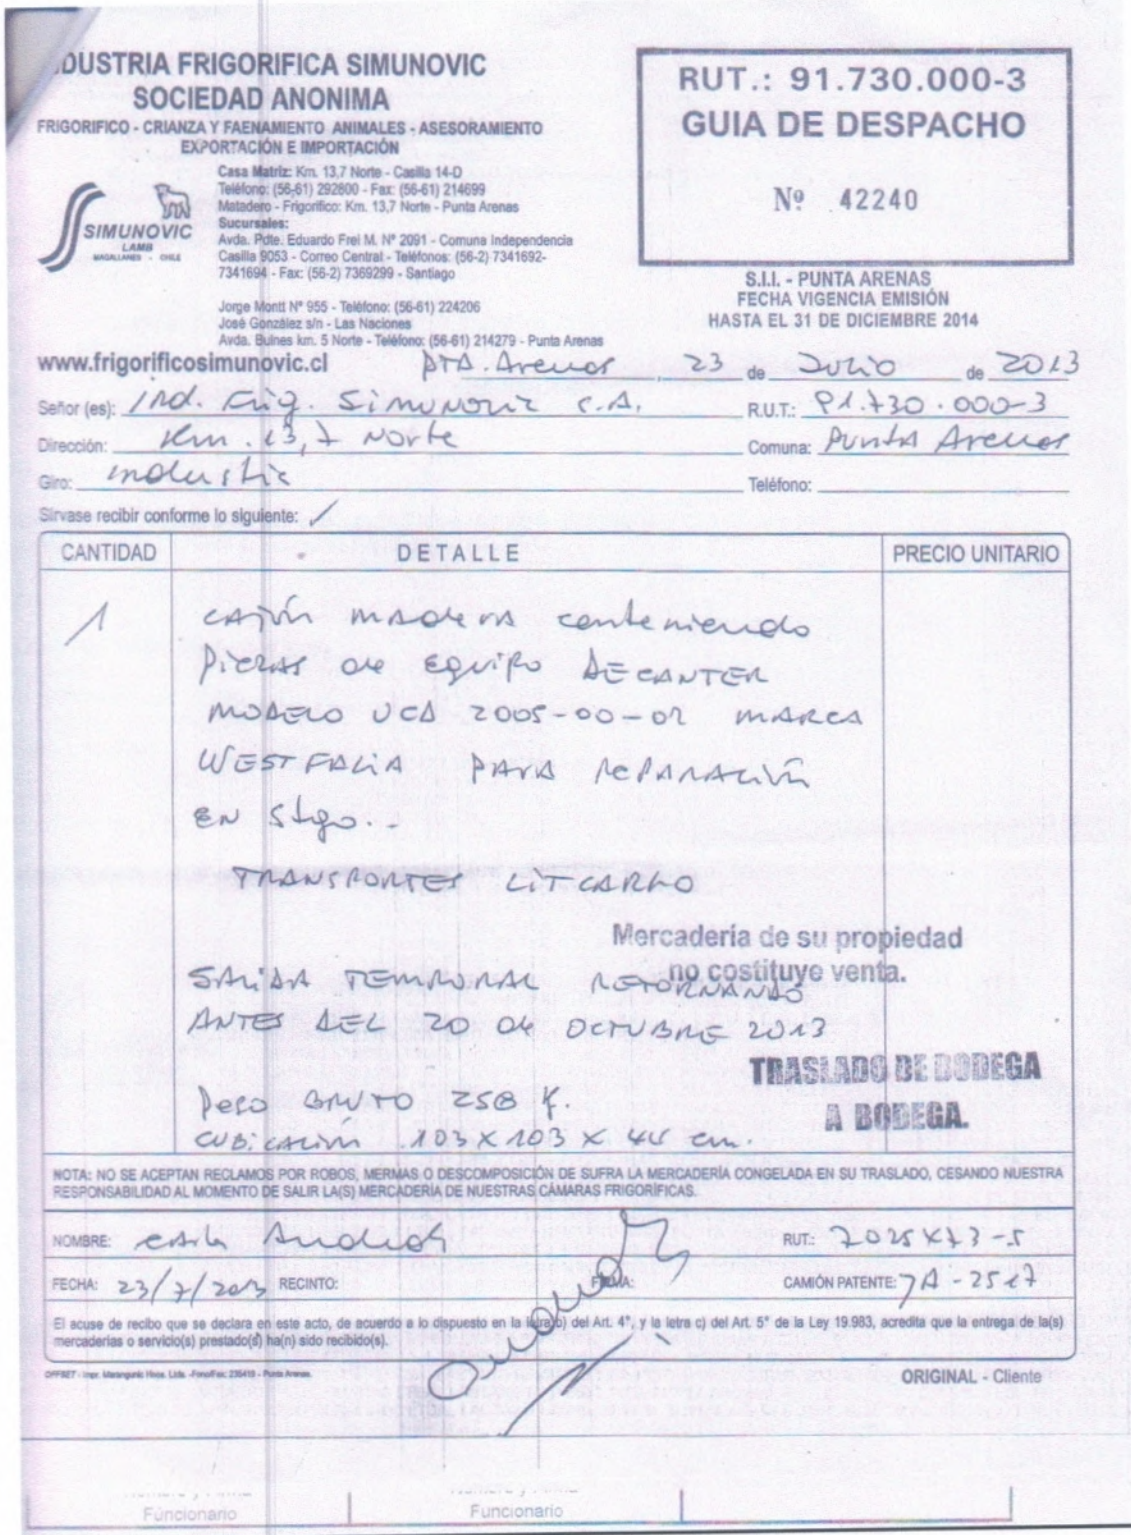 DUSTRIA FRIGORIFICA SIMUNOVIC
SOCIEDAD ANONIMA
FRIGORIFICO - CRIANZA Y FAENAMIENTO ANIMALES - ASESORAMIENTO
EXPORTACIÓN E IMPORTACIÓN
SIMUNOVIC
LAMB
MAGALLANES - CHILE
Casa Matriz: Km. 13,7 Norte - Casilla 14-D
Teléfono: (56-61) 292800 - Fax: (56-61) 214699
Matadero - Frigorífico: Km. 13,7 Norte - Punta Arenas
Sucursales:
Avda. Pdte. Eduardo Frei M. Nº 2091 - Comuna Independencia
Casilla 9053 - Correo Central - Teléfonos: (56-2) 7341692-
7341694 - Fax: (56-2) 7369299 - Santiago
Jorge Montt Nº 955 - Teléfono: (56-61) 224206
José González s/n - Las Naciones
Avda. Bulnes km. 5 Norte - Teléfono: (56-61) 214279 - Punta Arenas
www.frigorificosimunovic.cl
RUT.: 91.730.000-3
GUIA DE DESPACHO
Nº 42240
S.I.I. - PUNTA ARENAS
FECHA VIGENCIA EMISIÓN
HASTA EL 31 DE DICIEMBRE 2014
PTA. Arenas, 23 de Julio de 2013
Señor (es): Ind. Frig. Simunovic S.A. R.U.T.: 91.730.000-3
Dirección: Km. 13,7 Norte Comuna: Punta Arenas
Giro: industria Teléfono:
Sírvase recibir conforme lo siguiente:
CANTIDAD DETALLE PRECIO UNITARIO
1 cajón madera conteniendo
Piezas de equipo DECANTER
MODELO UCD 2005-00-02 MARCA
WESTFALIA PARA REPARACIÓN
EN Stgo.-
TRANSPORTES LITCARGO
Mercadería de su propiedad
no costituye venta.
SALIDA TEMPORAL RETORNANDO
ANTES DEL 20 de OCTUBRE 2013
TRASLADO DE BODEGA
A BODEGA.
Peso BRUTO 258 K.
CUBICACIÓN 103 X 103 X 44 cm.
NOTA: NO SE ACEPTAN RECLAMOS POR ROBOS, MERMAS O DESCOMPOSICIÓN DE SUFRA LA MERCADERÍA CONGELADA EN SU TRASLADO, CESANDO NUESTRA
RESPONSABILIDAD AL MOMENTO DE SALIR LA(S) MERCADERÍA DE NUESTRAS CÁMARAS FRIGORÍFICAS.
NOMBRE: RUT:
FECHA: 23/7/2013 RECINTO: FIRMA: CAMIÓN PATENTE: 7A-2517
El acuse de recibo que se declara en este acto, de acuerdo a lo dispuesto en la letra b) del Art. 4º, y la letra c) del Art. 5º de la Ley 19.983, acredita que la entrega de la(s)
mercaderías o servicio(s) prestado(s) ha(n) sido recibido(s).
OFFSET - Impr. Marangunic Hnos. Ltda. -Fono/Fax: 235410 - Punta Arenas.
ORIGINAL - Cliente
Funcionario
Funcionario